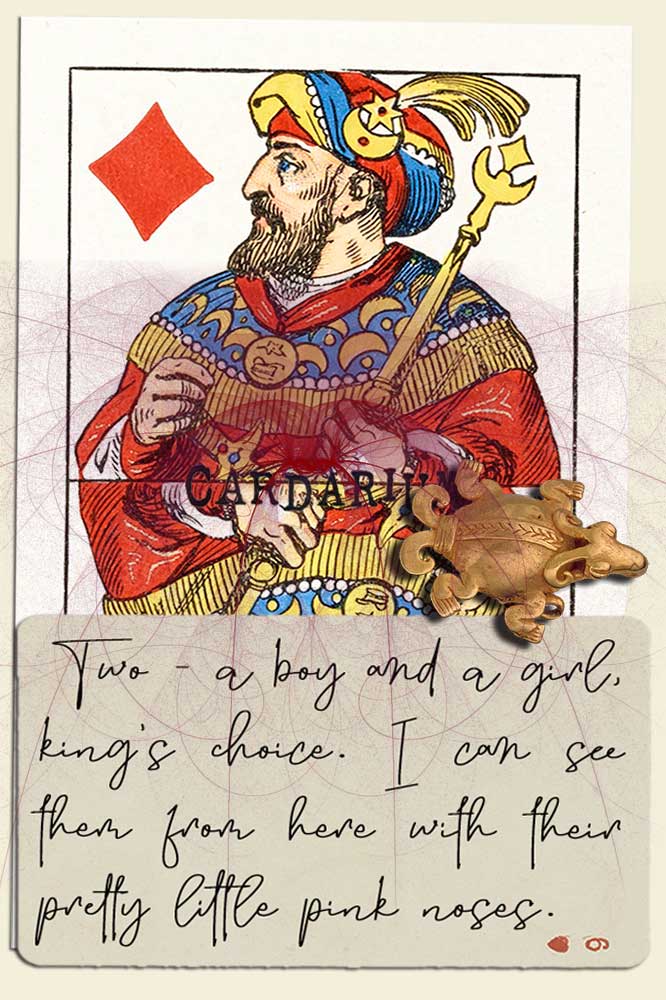 CARDARIUM
Two - a boy and a girl,
king's choice. I can see
them from here with their
pretty little pink noses.
6